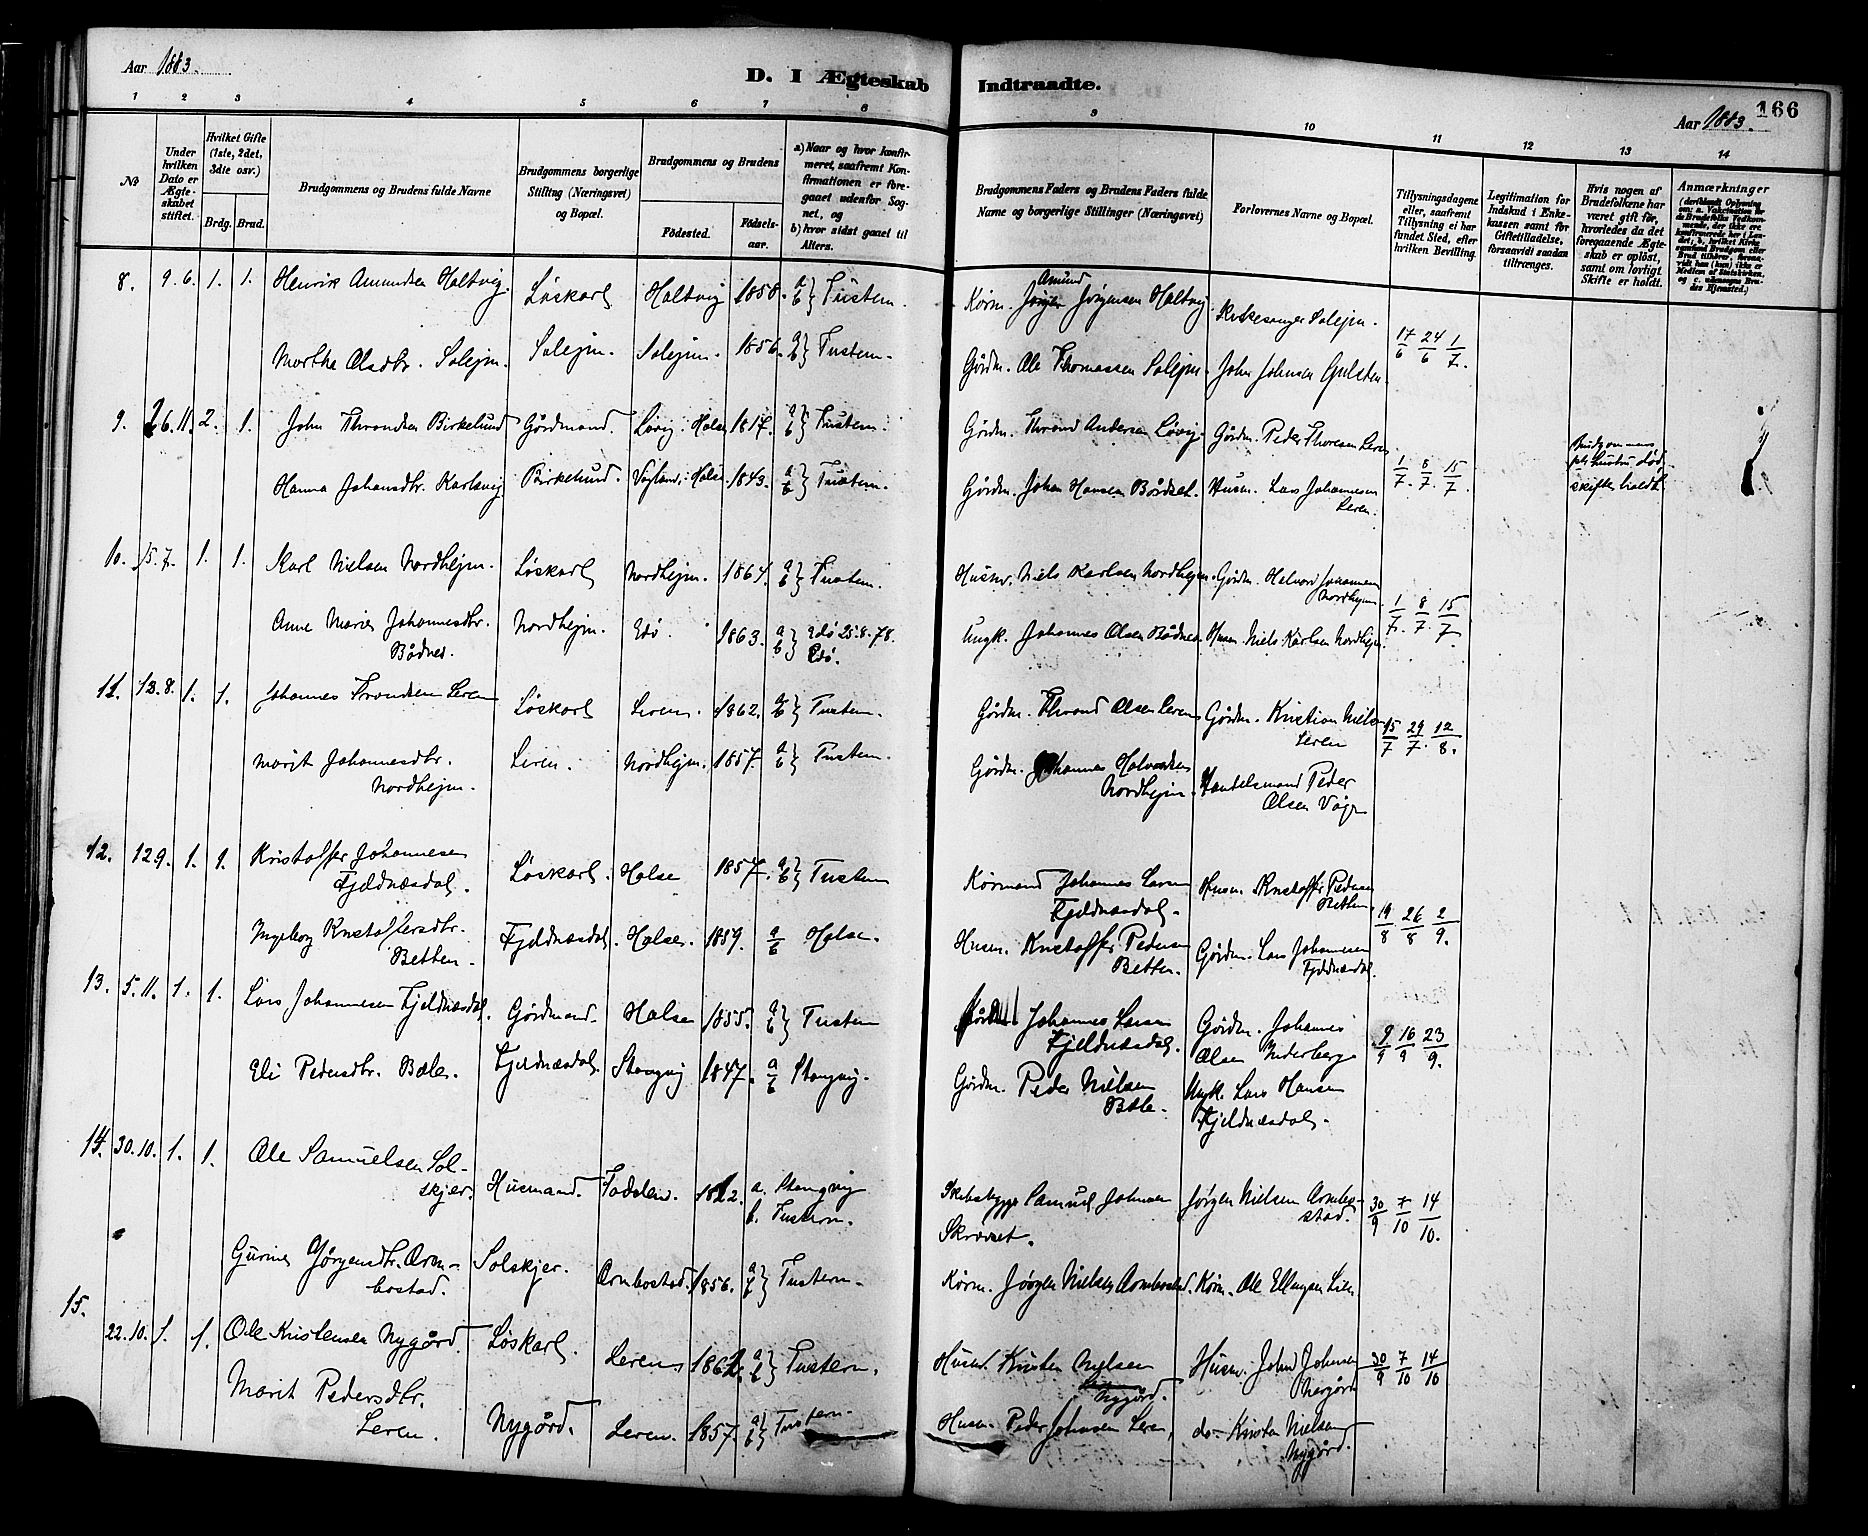 Aar 1883.
D. I Ægteskab Indtraadte.
166
Aar 1883.
1 2 3 4 5 6 7 8 9 10 11 12 13 14
No
Under hvilken Dato er Ægteskabet stiftet.
Hvilket Gifte (1ste, 2det, 3die osv.)
Brdg. Brud.
Brudgommens og Brudens fulde Navne
Brudgommens borgerlige Stilling (Næringsvei) og Bopæl.
Brudgommens og Brudens
Fødested. Fødselsaar.
a) Naar og hvor konfirmeret, saafremt Konfirmationen er foregaaet udenfor Sognet, og
b) hvor sidst gaaet til Alters.
Brudgommens Faders og Brudens Faders fulde Navne og borgerlige Stillinger (Næringsvei)
Forlovernes Navne og Bopæl.
Tillysningsdagene eller, saafremt Tillysning ei har fundet Sted, efter hvilken Bevilling.
Legitimation for Indskud i Enkekassen samt for Giftetilladelse, forsaavidt saadan tiltrænges.
Hvis nogen af Brudefolkene har været gift før, hvorledes da det foregaaende Ægteskab er opløst, samt om lovligt Skifte er holdt.
Anmærkninger
8. 9.6. 1. 1. Henrik Amundsen Holtvig. Löskarl Holtvig 1858. a b } Tustern. Körm. Amund Jørgensen Holtvig Kirkesanger Solejm. 17/6 24/6 1/7.
Marthe Olsdtr. Solejm. Solejm. Solejm. 1856. a b } Tustern. Gårdm. Ole Thomassen Solejm. John Johnsen Gulsten.
9. 26.11. 2. 1. John Throndsen Birkelund Gårdmand. Lövig i Halse 1817. a b } Tustern. Gårdm. Thrond Andersen Lövig. Gårdm. Peder Thoresen Leren 1/7. 8/7. 15/7.
skifte holdt
Hanna Johansdtr. Karlsvig Birkelund. Vågland i Halse 1843. a b } Tustern. Gårdm. Johan Hansen Bårdset. Husm. Lars Johannesen Leren.
10. 15.7. 1. 1. Karl Nielsen Nordhejm. Löskarl Nordhejm. 1864. a b } Tustern. Husm. Niels Karlsen Nordhejm. Gårdm. Halvard Johannesen Nordhejm. 1/7. 8/7. 15/7
Anne Marie Johannesdtr. Bådnes. Nordhejm. Edö. 1863. a b } Edö 25.8.78. Edö. Ungk. Johannes Olsen Bådnes. Husm. Niels Karlsen Nordhejm.
11. 12.8. 1. 1. Johannes Throndsen Leren Löskarl Leren. 1862. a b } Tustern. Gårdm. Thrond Olsen Leren Gårdm. Kristian Nielsen Leren 15/7 29/7. 12/8.
Marit Johannesdtr. Nordhejm. Leren. Nordhejm. 1857 a b } Tustern. Gårdm. Johannes Halvordsen Nordhejm. Handelsmand Peder Olsen Våge
12. 12.9. 1. 1. Kristoffer Johannesen Fjeldnæsdal. Löskarl. Halse 1857. a b } Tustern Körmand Johannes Larsen Fjeldnæsdal. Husm. Kristoffer Pedersen Betten 19/8 26/8 2/9.
Ingeborg Kristoffersdtr. Betten. Fjeldnæsdal. Halse. 1859. a b Halse. Husm. Kristoffer Pedersen Betten. Gårdm. Lars Johannesen Fjeldnæsdal.
13. 5.11. 1. 1. Lars Johannesen Fjeldnæsdal. Gårdmand. Halse 1855. a b } Tustern Johannes Larsen Fjeldnæsdal. Gårdm. Johannes Olsen Nederberge 9/9 16/9 23/9.
Eli Pedersdtr. Bæle. Fjeldnæsdal. Stangvig 1847. a b Stangvig. Gårdm. Peder Nielsen Bæle. Ungk. Lars Hansen Fjeldnæsdal.
14. 30.10. 1. 1. Ole Samuelsen Solskjer. Husmand. a. Stangvig b. Tustern. Samuel Johnsen Skrövset. Jörgen Nielsen Ormbostad. 30/9 7/10 14/10.
Gurine Jörgensdtr. Ormbostad. Solskjer. Ormbostad. 1856. a b } Tustern. Körm. Jörgen Nielsen Ormbostad. Körm. Ole Ellingsen Lien
15. 22.10. 1. 1. Ole Kristensen Nygård. Löskarl. Leren 1862. a b } Tustern. Husm. Kristen Nielsen Nygård. Husm. John Johnsen Nergård 30/9 7/10 14/10
Marit Pedersdtr. Leren. Nygård. Leren. 1857. a b } Tustern. Husm. Peder Johnsen Leren, do. Kristen Nielsen Nygård.